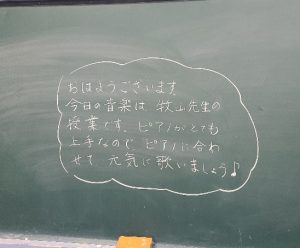 おはようございます
今日の音楽は 牧山先生の
授業です、ピアノがとても
上手なので ピアノに合わ
せて 元気に歌いましょう♪